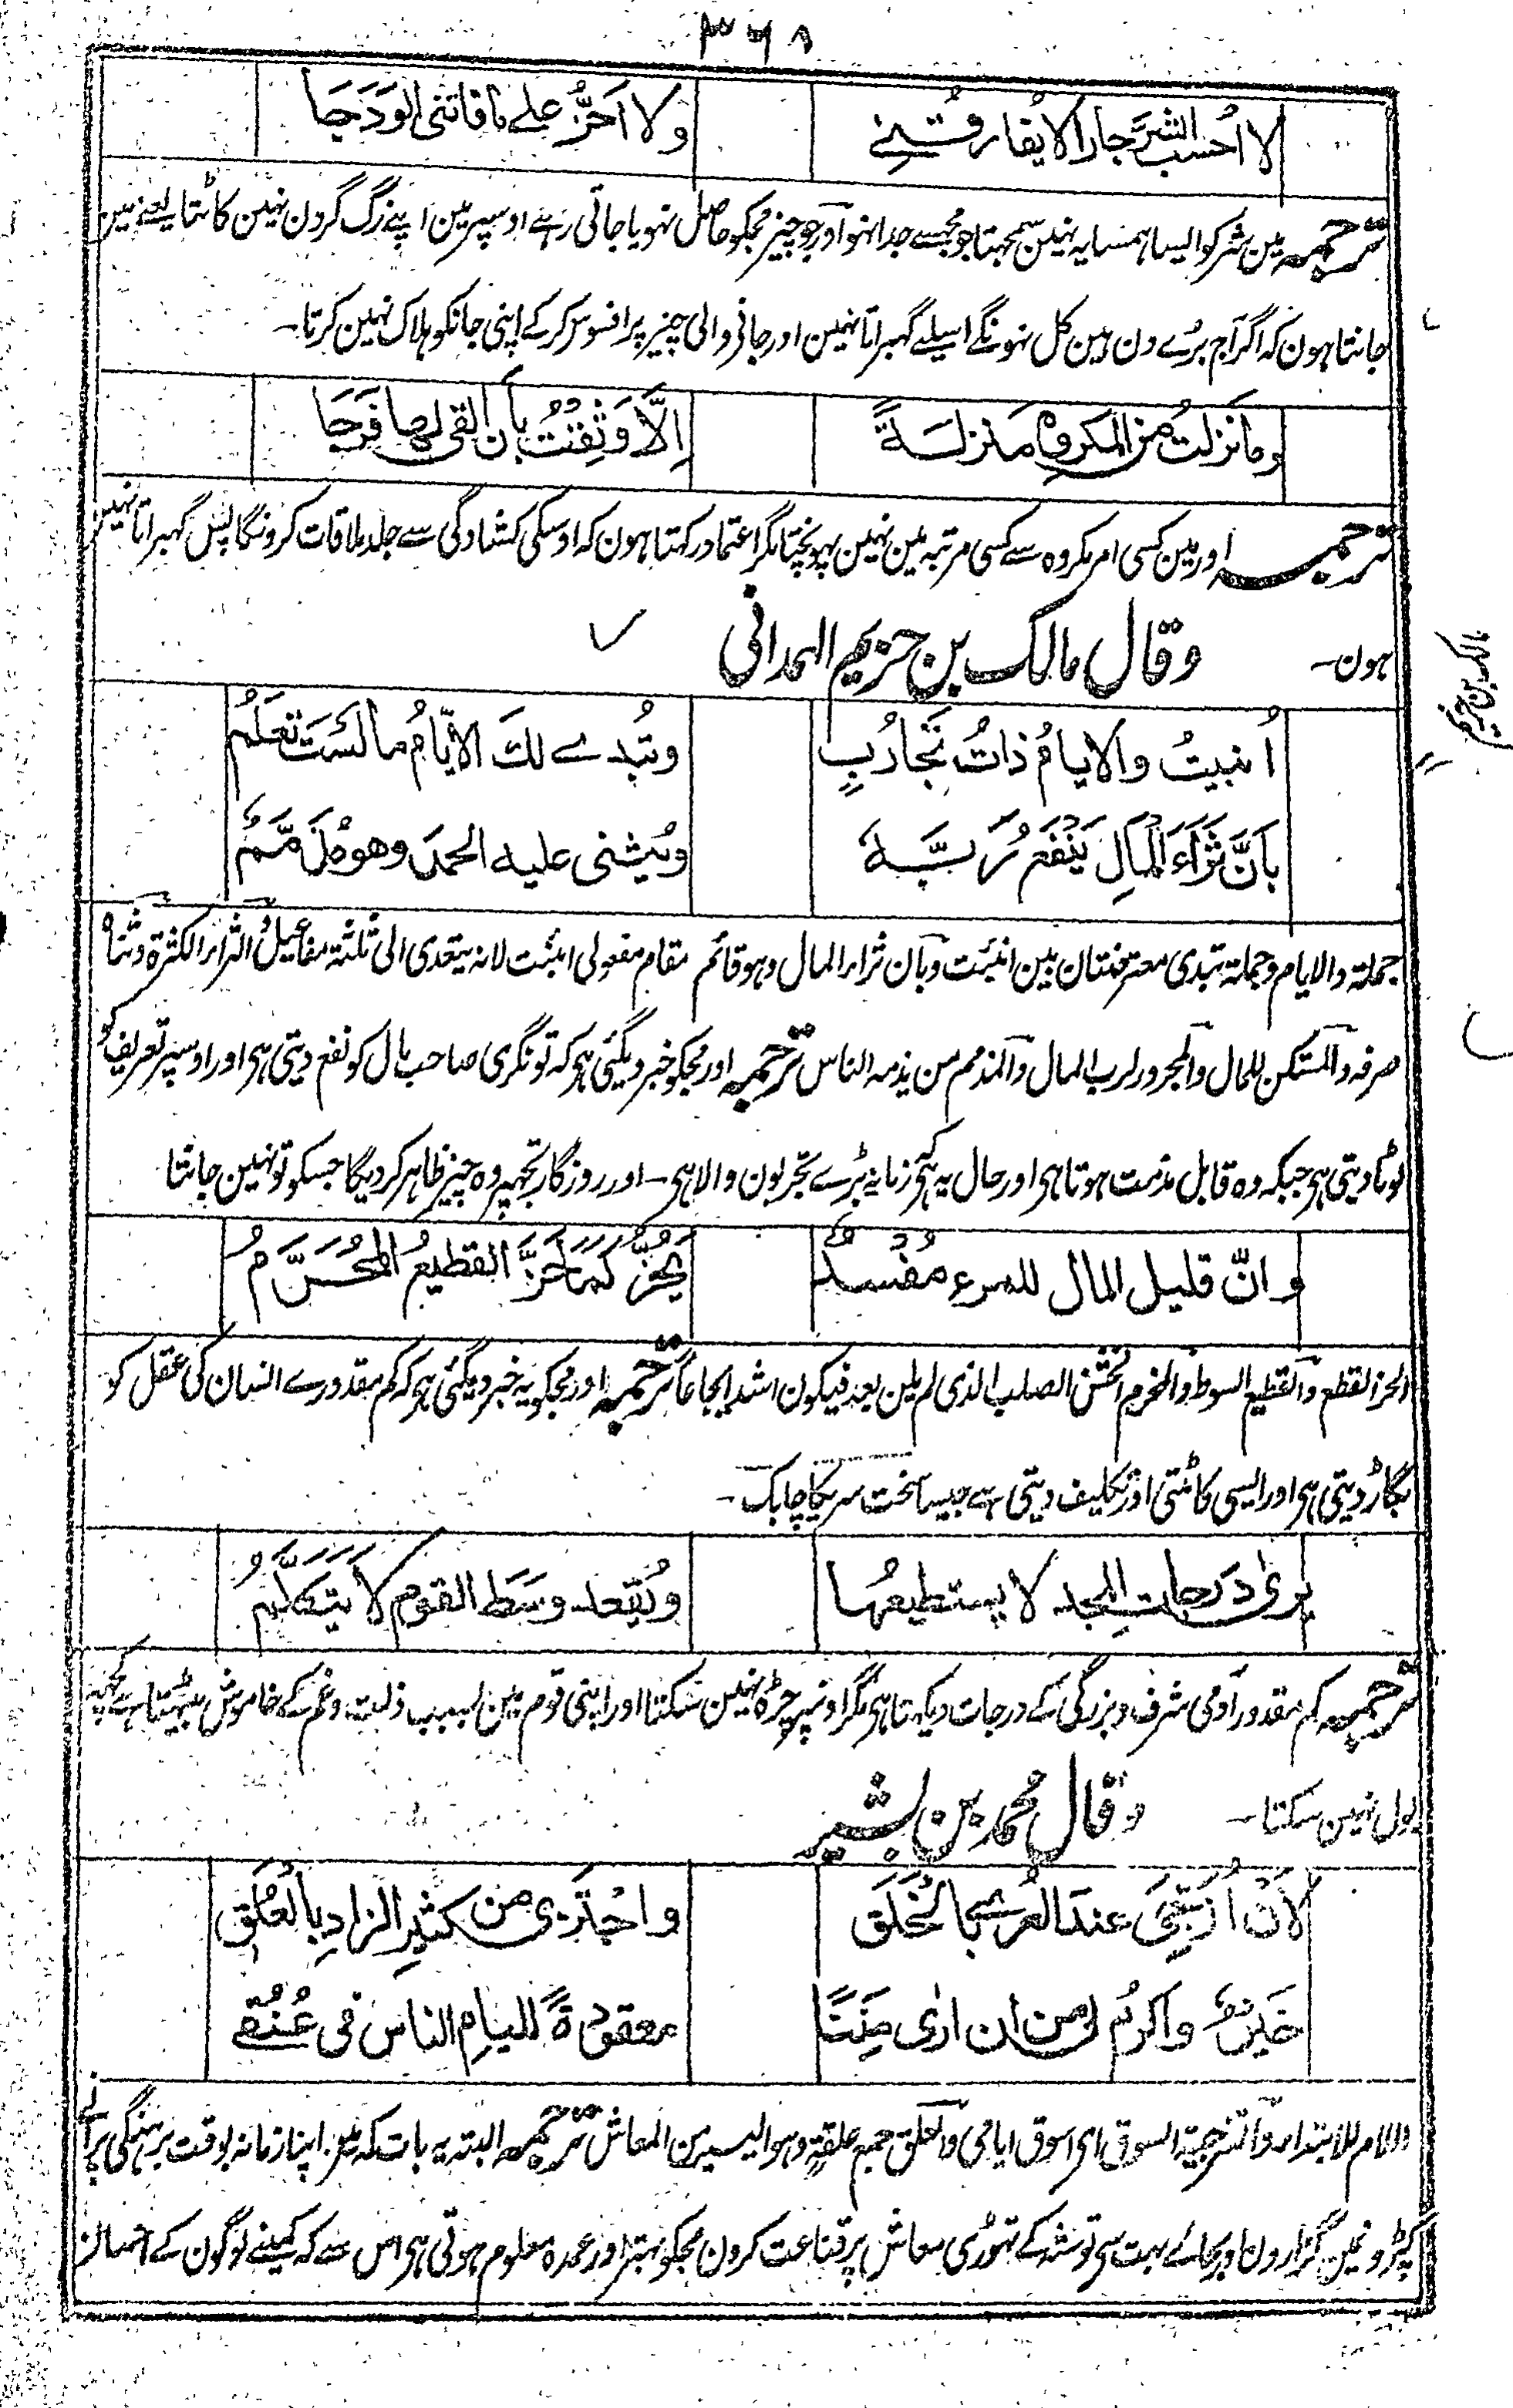 ۳۶۸
لا اُحسب الشرَّ جارا لا یُفارقُنے ولا اَحُزُّ علے ما فاتنی الوَدَجَا
ترجمہ مین شر کو ایسا ہمسایہ نہین سمجہتا جو مجہسے جدا نہو اور جو چیز مجکو حاصل نہو یا جاتی رہے اوسپر مین اپنے رگ گردن نہین کاٹتا یعنے مین
جانتا ہون کہ اگر آج بُرے دن ہین کل نہونگے اسیلے گہبراتا نہین اور جانیوالی چیز پر افسوس کرکے اپنی جانکو ہلاک نہین کرتا۔
وما نزلتُ من المکروہ منزلۃً اِلَّا وَثِقْتُ بأن القی لہا فَرَجَا
ترجمہ اور مین کسی امر مکروہ سے کسی مرتبہ مین نہین پہونچتا مگر اعتماد رکہتا ہون کہ اوسکی کشادگی سے جلد ملاقات کرونگا پس گہبراتا نہین
ہون۔ وقال مالک بن حزیم الہمدانی
مالک بن حزیم
اُنبیتُ والایامُ ذاتُ تَجَارُبٍ وتُبدے لکَ الایّامُ ما لَسْتَ تَعلَمُ
بَأنَّ ثَرَاءَ المَالِ یَنْفَعُ رَبَّہٗ ویُثنی علیہ الحمدَ وھو مُذَمَّمُ
جملۃ والایام وجملۃ تبدی معترضتان بین انبئت وبان ثراء المال وہو قائم مقام مفعولی انبئت لانہ یتعدی الی ثلثۃ مفاعیل الثراء الکثرۃ وثناہ
صرفہ والمستکن للمال والمجرور لرب المال والمذمم من یذمہ الناس ترجمہ اور مجکو خبر دیگئی ہی کہ تونگری صاحب مال کو نفع دیتی ہی اور اوسپر تعریف کو
لوٹا دیتی ہی جبکہ وہ قابل مذمت ہوتا ہی اور حال یہ ہی کہ زمانہ بڑے تجربون والا ہی۔ اور روزگار تجہپر وہ چیز ظاہر کردیگا جسکو تو نہین جانتا
وانّ قلیل المال للمرء مفسدٌ یَحُزُّ کَمَا حَزَّ القطیعُ المُحَرَّمُ
الحز القطع والقطیع السوط والمحرم الخشن الصلب الذی لم یلن بعد فیکون اشد ایجاعاً ترجمہ اور مجکو یہ خبر دیگئی ہی کہ کم مقدورے انسان کی عقل کو
بگاڑ دیتی ہی اور ایسی کاٹتی اور تکلیف دیتی ہے جیسا سخت سریکا چابک۔
یریٰ دَرَجاتِ المجد لا یستطیعُہا ویَقعد وَسَطَ القوم لا یَتَکَلَّمُ
ترجمہ کم مقدور آدمی شرف و بزرگی کے درجات دیکہتا ہی مگر اونپر چڑہ نہین سکتا اور اپنی قوم مین بسبب ذلت وغم کے خاموش بیٹہتا ہے کچہہ
بول نہین سکتا۔ وقال محمد بن بشیر
لَاَنْ اُزَجِّیَ عندَ العُرْیِ بالخَلَقِ واَجتَزِی من کثیرِ الزادِ بالعُلَقِ
خَیرٌ واَکرمُ لی من ان اریٰ مِنَنًا معقودۃً للیامِ الناس فی عُنُقے
اللام للابتداء والتزجیۃ السوق ای اسوق ایامی والعلق جمع علقۃ وہو الیسیر من المعاش ترجمہ البتہ یہ بات کہ مین اپنا زمانہ بوقت برہنگی پرانے
کپڑونمین گزارون اور بجائے بہت سی توشہ کے تہوڑی معاش پر قناعت کرون مجکو بہتر اور عمدہ معلوم ہوتی ہی اس سے کہ کمینے لوگون کے احسان